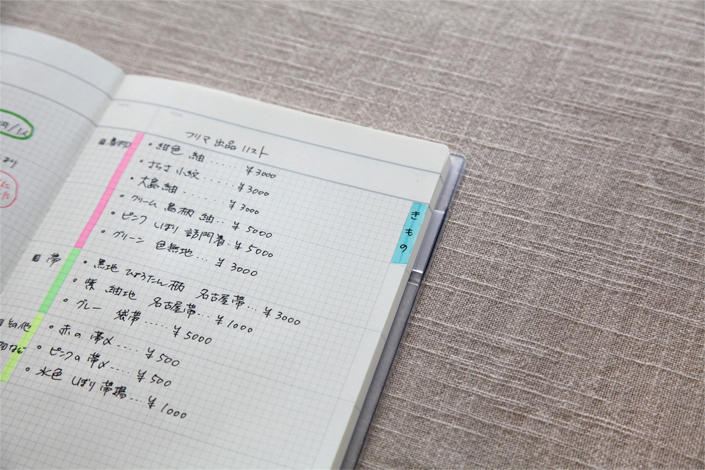 フリマ出品リスト
着物
・紺色 紬 ‥‥ ¥3000
・さらさ 小紋 ‥‥ ¥3000
・大島紬 ‥‥ ¥3000
・クリーム 鳥柄 紬 ‥ ¥5000
・ピンク しぼり 訪問着 ‥ ¥5000
・グリーン 色無地 ‥ ¥3000
帯
・黒地 ひょうたん柄 名古屋帯 ‥ ¥3000
・紫 紬地 名古屋帯 ‥ ¥1000
・グレー 袋帯 ‥‥ ¥5000
・赤の帯〆 ‥‥ ¥500
・ピンクの帯〆 ‥ ¥500
・水色 しぼり 帯揚 ‥ ¥1000
きもの